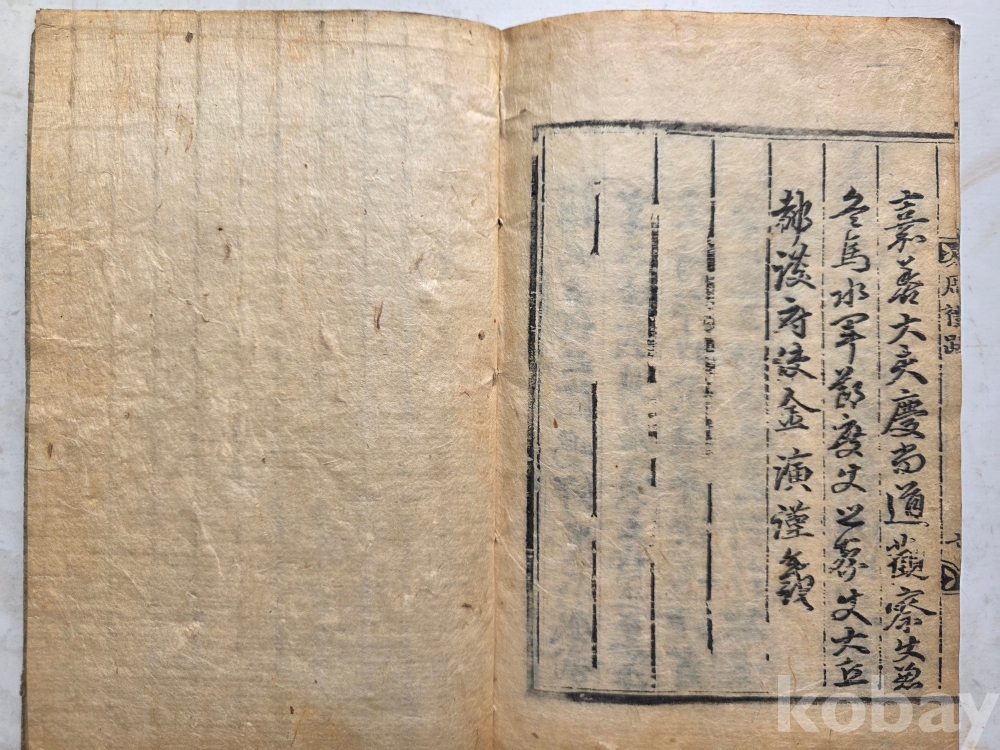 嘉善大夫慶尚道觀察使兼
兵馬水軍節度使巡察使大丘
都護府使金演謹
kobay